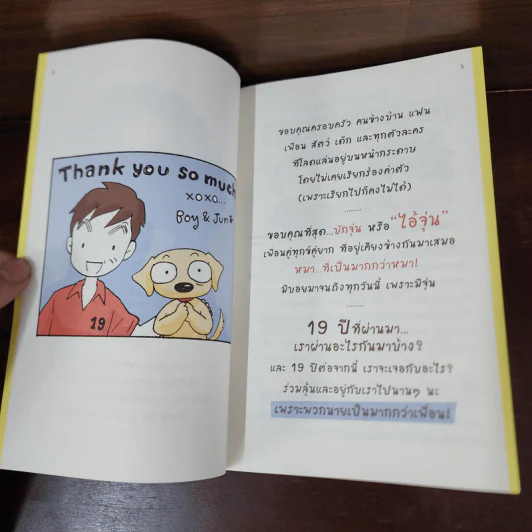 Thank you so much
xoxo...
Boy & Jun
19
ขอบคุณครอบครัว คนข้างบ้าน แฟน
เพื่อน สัตว์ เด็ก และทุกตัวละคร
ที่โลดแล่นอยู่บนหน้ากระดาษ
โดยไม่เคยเรียกร้องค่าตัว
(เพราะเรียกไปก็คงไม่ได้)
........
ขอบคุณที่สุด...บักจุ่น หรือ "ไอ้จุ่น"
เพื่อนคู่ทุกข์คู่ยาก ที่อยู่เคียงข้างกันมาเสมอ
หมา...ที่เป็นมากกว่าหมา!
มีบอยมาจนถึงทุกวันนี้ เพราะมีจุ่น
........
19 ปีที่ผ่านมา...
เราผ่านอะไรกันมาบ้าง?
และ 19 ปีต่อจากนี้ เราจะเจอกับอะไร?
ร่วมลุ้นและอยู่กับเราไปนานๆ นะ
เพราะพวกนายเป็นมากกว่าเพื่อน!